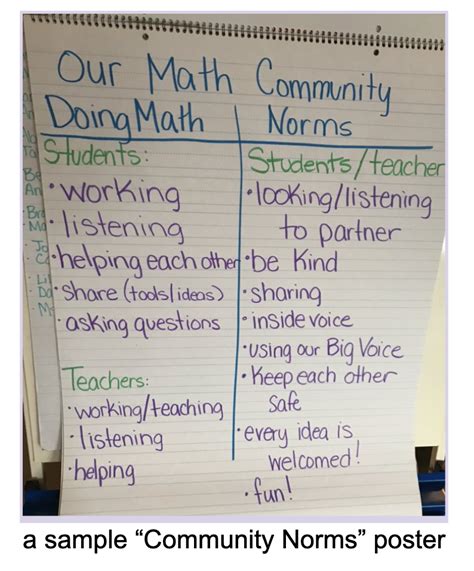 Our Math Community
Doing Math
Students:
• working
• listening
• helping each other
• share (tools/ideas)
• asking questions
Teachers:
• working/teaching
• listening
• helping
Norms
Students/teacher
• looking/listening
to partner
• be Kind
• sharing
• inside voice
• using our Big Voice
• Keep each other
safe
• every idea is
welcomed!
• fun!
a sample “Community Norms” poster